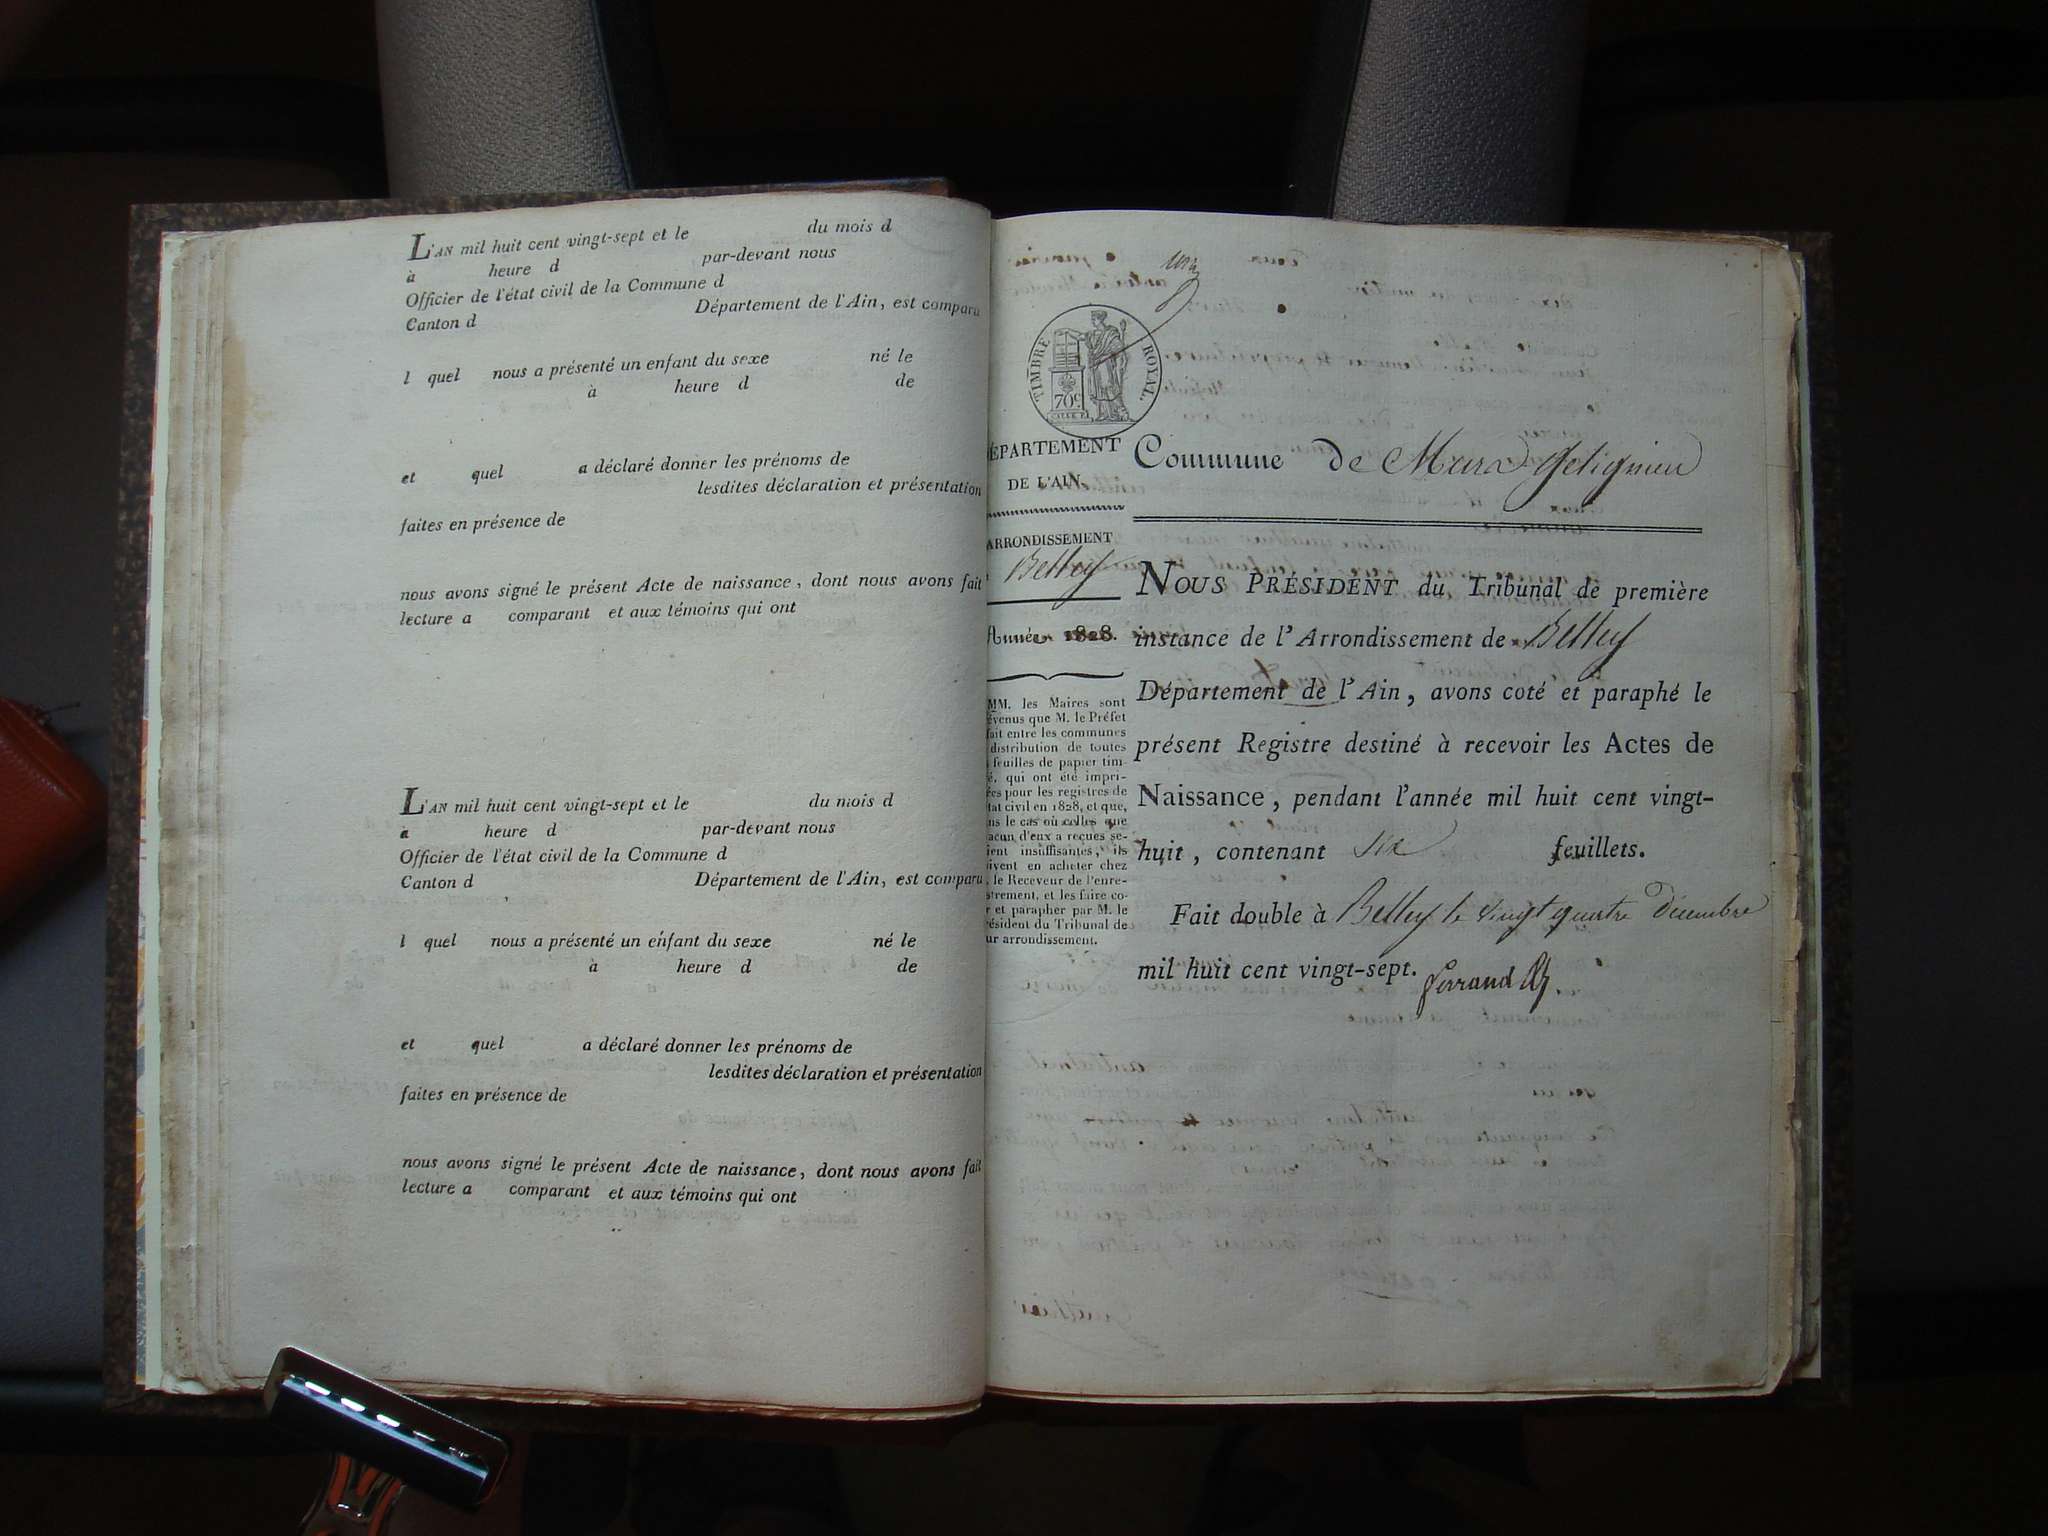 L'AN mil huit cent vingt-sept et le du mois d
à heure d par-devant nous
Officier de l'état civil de la Commune d
Canton d Département de l'Ain, est comparu
l quel nous a présenté un enfant du sexe né le
à heure d de
et quel a déclaré donner les prénoms de
lesdites déclaration et présentation
faites en présence de
nous avons signé le présent Acte de naissance, dont nous avons fait
lecture a comparant et aux témoins qui ont
L'AN mil huit cent vingt-sept et le du mois d
à heure d par-devant nous
Officier de l'état civil de la Commune d
Canton d Département de l'Ain, est comparu
l quel nous a présenté un enfant du sexe né le
à heure d de
et quel a déclaré donner les prénoms de
lesdites déclaration et présentation
faites en présence de
nous avons signé le présent Acte de naissance, dont nous avons fait
lecture a comparant et aux témoins qui ont
TIMBRE ROYAL.
70c
ÉPARTEMENT
DE L'AIN.
ARRONDISSEMENT
Belley
Année 1828.
MM. les Maires sont
évenus que M. le Préfet
fait entre les communes
distribution de toutes
s feuilles de papier tim-
é, qui ont été impri-
ées pour les registres de
tat civil en 1828, et que,
ns le cas où celles que
acun d'eux a reçues se-
ient insuffisantes, ils
ivent en acheter chez
. le Receveur de l'enre-
strement, et les faire co-
r et parapher par M. le
résident du Tribunal de
ur arrondissement.
Commune de Murs Gelignieu
NOUS PRÉSIDENT du Tribunal de première
instance de l'Arrondissement de Belley
Département de l'Ain, avons coté et paraphé le
présent Registre destiné à recevoir les Actes de
Naissance, pendant l'année mil huit cent vingt-
huit, contenant six feuillets.
Fait double à Belley le vingt quatre Décembre
mil huit cent vingt-sept.